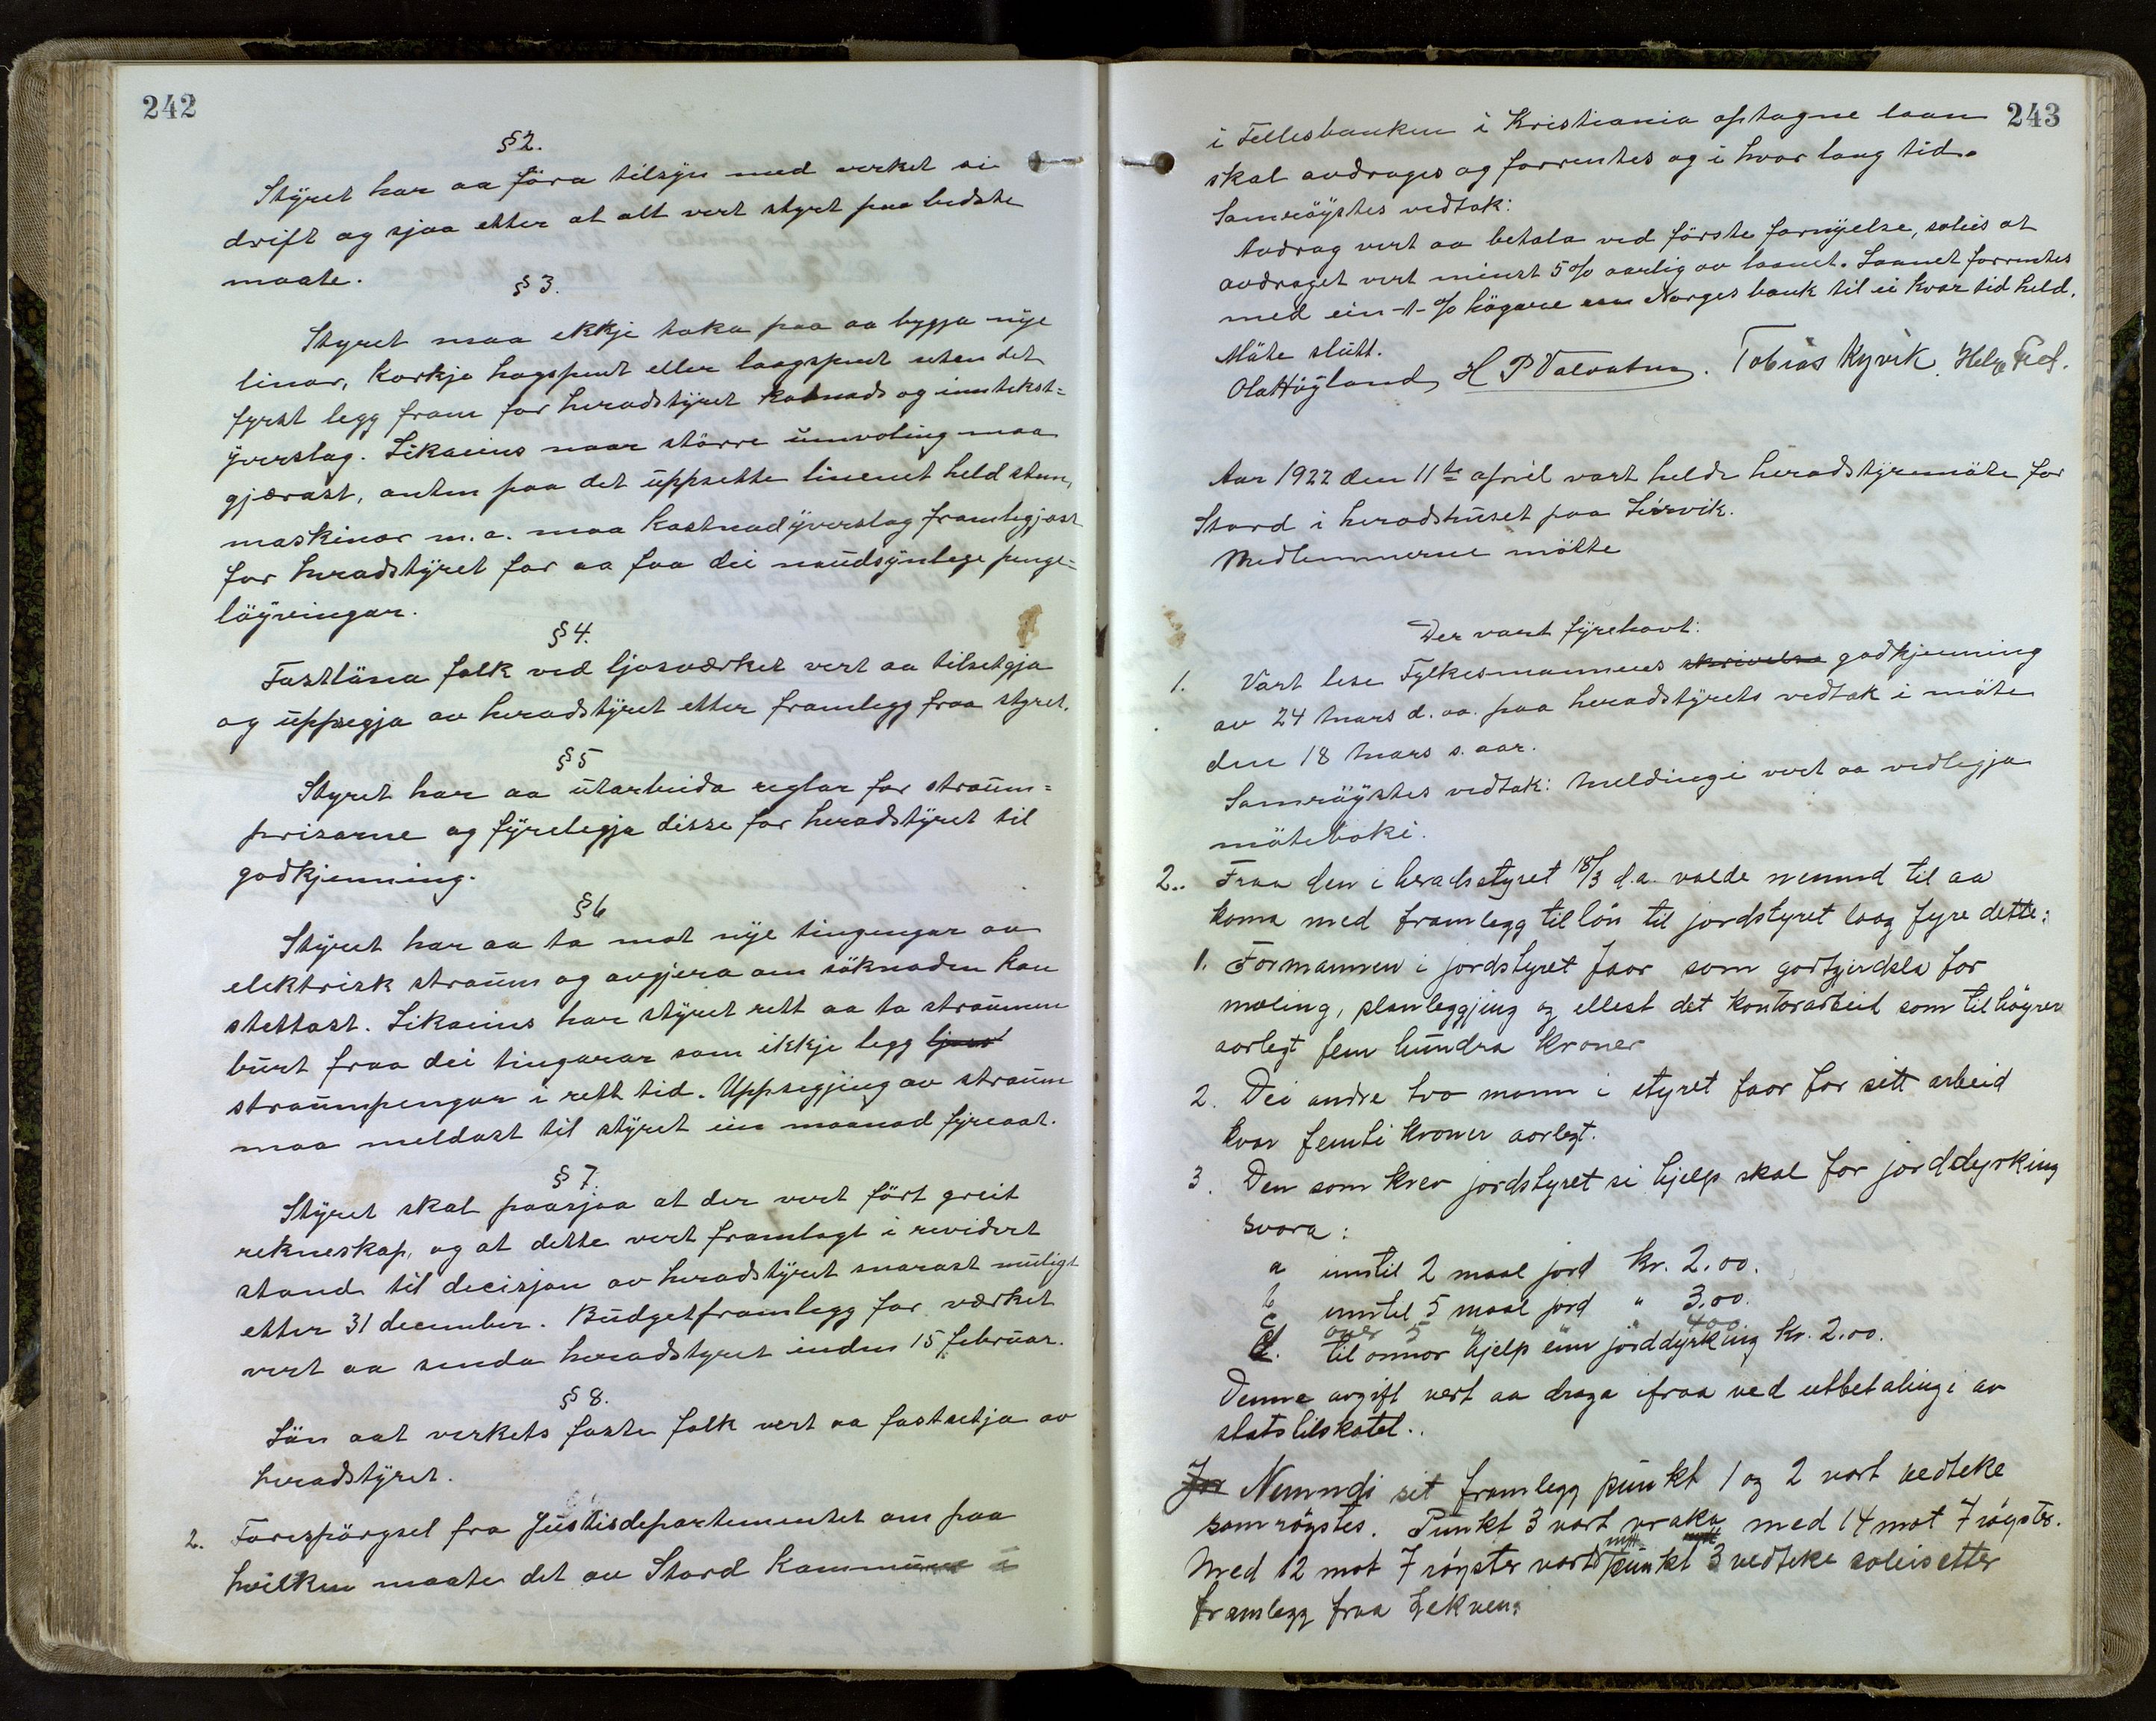 242
§ 2.
Styret har aa föra tilsyn med verket si
drift og sjaa etter at alt vert styrt paa bedste
maate.
§ 3.
Styret maa ekkje taka paa aa byggja nye
linor, korkje hagspent eller laagspent uten det
fyrst legg fram for heradstyret kostnads og inntekst=
yverslag. Likaeins naar större umvöling maa
gjærast, anten paa det uppsette linenet held
maskinor m.a. maa kostnadyverslag framlegjast
for heradstyret for aa faa dei naudsynlege penge=
löyvingar.
§ 4.
Fastläna folk ved ljosværket vert aa tilsetgja
og uppsegja av heradstyret etter framlegg fraa styret.
§ 5
Styret har aa utarbeida reglar for straum=
prisarne og fyrelegja disse for heradstyret til
godkjenning.
§ 6
Styret har aa ta mot nye tingingar av
elektrisk straum og avgjera om söknaden kan
stettast. Likaeins har styret rett aa ta straumen
burt fraa dei tingarar som ikkje legg ljos
straumpengar i rett tid. Uppsegjing av straum
maa meldast til styret ein maanad fyreaat.
§ 7.
Styret skal paasjaa at der vert fört greit
rekneskap, og at dette vert framlagt i revidert
stand til decisjon av heradstyret snarast muligt
etter 31 december. Budgetframlegg for værket
vert aa senda heradstyret inden 15 februar.
§ 8.
Lön aat verkets faste folk vert aa fastsetja av
heradstyret.
2. Forespörgsel fra Justisdepartementet om paa
hvilken maate det av Stord kommune i
243
i Fellesbanken i Kristiania optagne laan
skal avdrages og forrentes og i hvor lang tid.
Samröystes vedtak:
Avdrag vert aa betala ved förste fornyelse, soleis at
avdraget vert minst 5% aarlig av laanet. Laanet forrentes
med ein -1- % högare enn Norges bank til ei kvar tid held.
Möte slutt.
Ola Höyland H P Valvatne. Tobias Kyvik.
Aar 1922 den 11te april vart helde heradstyremöte for
Stord i heradshuset paa Leirvik.
Medlemmerne mötte
Der vart fyrehavt:
1. Vart lese Fylkesmannens skrivelse godkjenning
av 24 mars d. aa. paa heradstyrets vedtak i möte
den 18 mars s. aar.
Samröystes vedtak: Meldingi vert aa vedlegja
möteboki.
2.. Fraa den i heradsstyret 18/3 d.a. valde nemnd til aa
koma med framlegg til lön til jordstyret laag fyre dette:
1. Formannen i jordstyret faar som godtgjerdsla for
maling, planleggjing og ellest det kontorarbeid som tilhöyrer
aarlegt fem hundra kroner
2. Dei andre tvo mann i styret faar for sitt arbeid
kvar femti kroner aarlegt.
3. Den som krev jordstyret si hjelp skal for jorddyrking
svara:
a inntil 2 maal jord kr. 2.00.
b inntil 5 maal jord " 3.00.
c over 5 " " 400
d. til onnor hjelp enn jorddyrking kr. 2.00.
Denne avgift vert aa draga ifraa ved utbetalingi av
statstilskotet..
Jor Nemndi sit framlegg punkt 1 og 2 vart vedteke
samröystes. Punkt 3 vart vraka med 14 mot 7 röyster.
Med 12 mot 7 röyster vart nytt punkt 3 vedteke soleis etter
framlegg fraa Lekven: